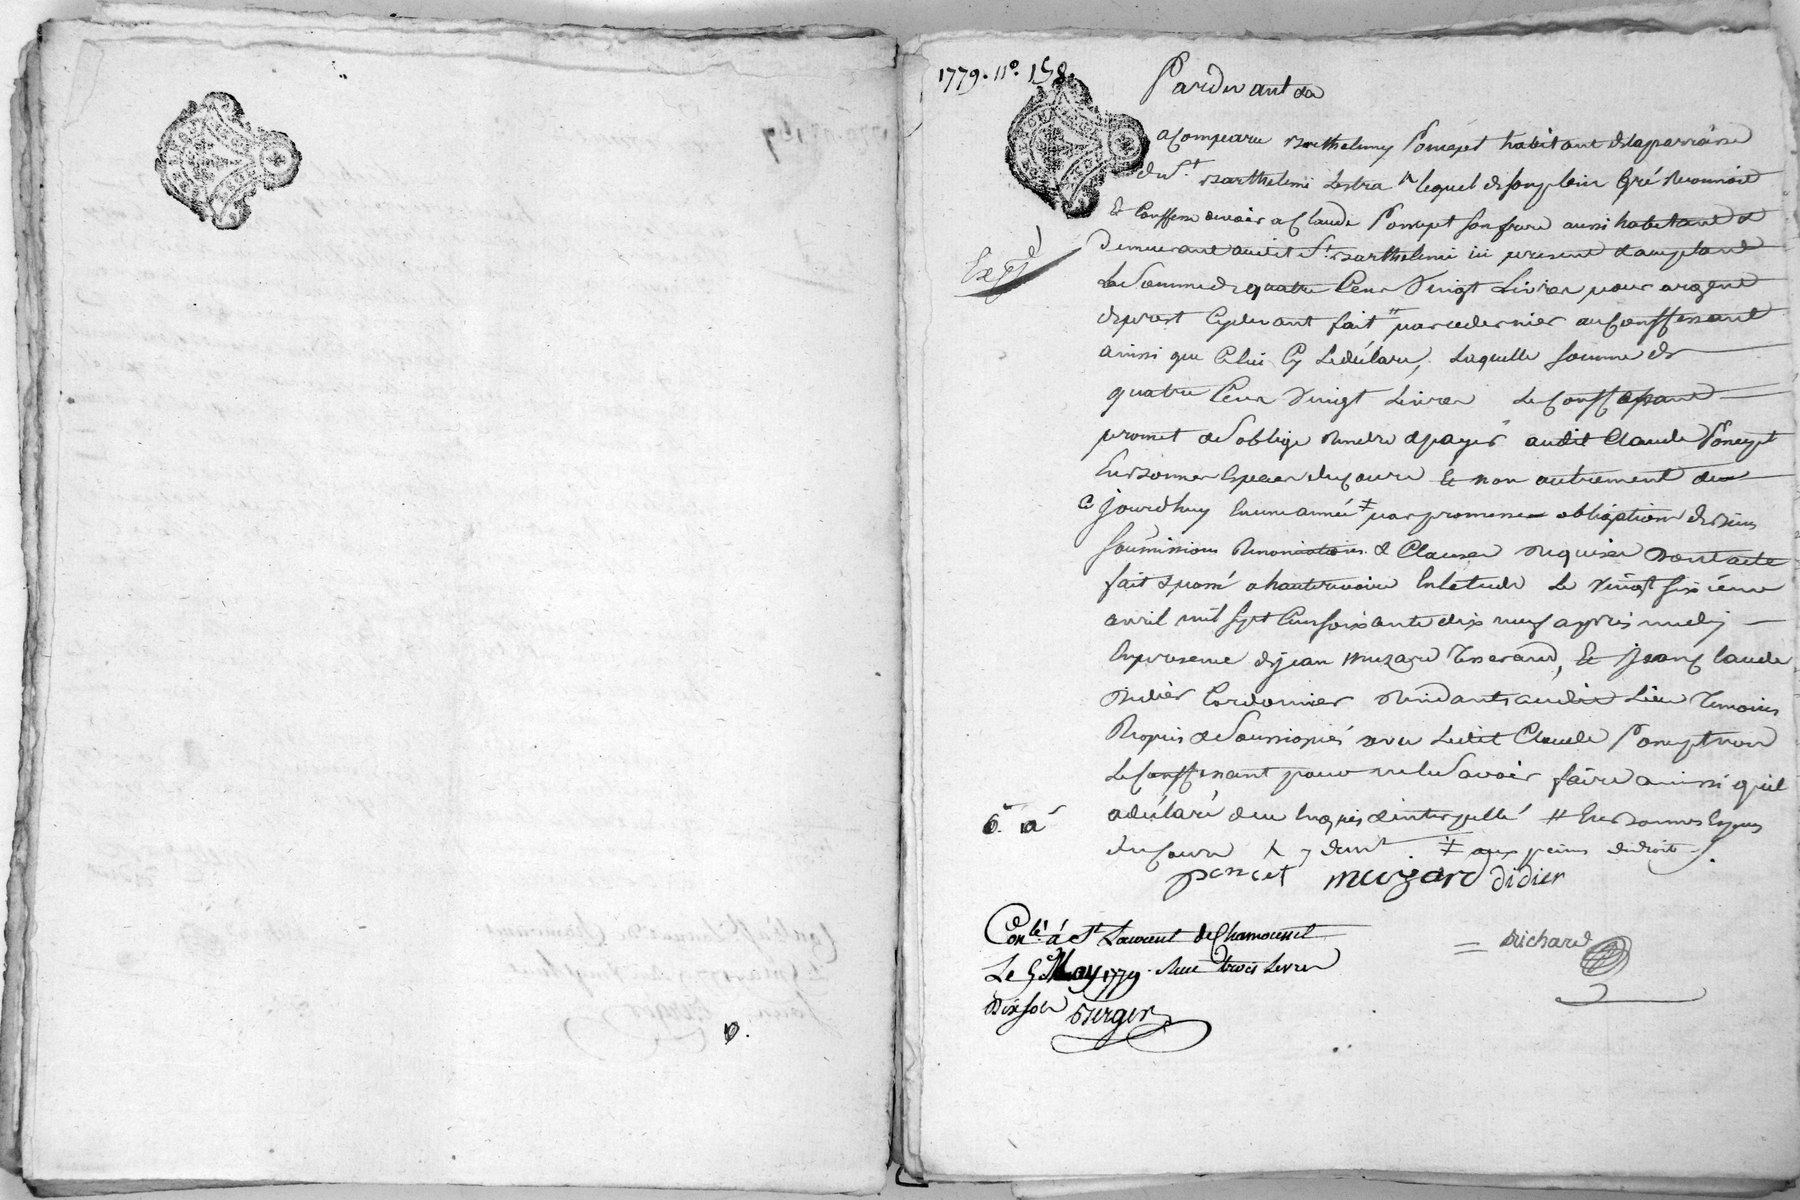 1779. n°. 158.
Pardevant &a
a Comparu Barthelemy Poncet habitant de la parroisse
de St. Barthelemi Lestra lequel de son plein Gré Reconnoit
Et Confesse devoir a Claude Poncet son frere aussi habitant &
demeurant audit St. Barthelemi ici present acceptant
La Somme de quatre Cent Vingt Livres pour argent
de prest Cydevant fait # par ce dernier au Confessant
ainsi que Celui Cy Le déclare, Laquelle somme de
quatre Cent Vingt Livres Le Confessant
promet & S'oblige Rendre & payer audit Claude Poncet
En bonnes Especes du Cours Et non autrement de
Ce jourdhuy En une année ‡ par promesse obligation de biens
Soumissions Renonciations & Clauses Requises dont acte
fait & passé a hauterivoire En letude Le vingt sixieme
avril mil sept Cent soixante dix neuf après midy
En presence de jean muzard Tisserand, Et Jean Claude
Didier Cordonnier Residants audit Lieu Temoins
Requis & Soussignés avec Ledit Claude Poncet non
Le Confessant pour ne le Savoir faire ainsi qu'il
a déclaré de ce Enquis & interpellé # En bonnes Especes
du Cours ‡ aux peines de droit
poncet muzard didier
Conlé. á St Laurent de Chamousset
Le 5 May 1779. Recu trois Livres
Dix sols Berger
Richard